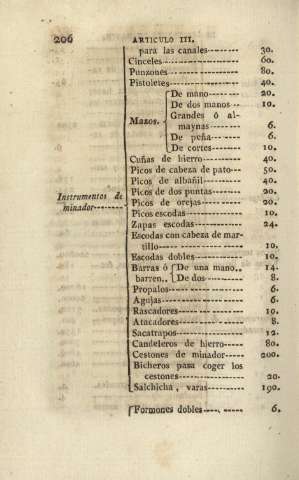 206 ARTICULO III.
para las canales-------- 30.
Cinceles---------------- 60.
Punzones---------------- 80.
Pistoletes-------------- 40.
De mano-------- 20.
De dos manos-- 10.
Mazos. Grandes ó al-
maynas-------- 6.
De peña------- 6.
De cortes------ 10.
Cuñas de hierro--------- 40.
Picos de cabeza de pato--- 50.
Picos de albañil-------- 40.
Instrumentos de Picos de dos puntas------ 20.
minador------- Picos de orejas-------- 20.
Picos escodas---------- 10.
Zapas escodas---------- 24.
Escodas con cabeza de mar-
tillo---------------- 10.
Escodas dobles--------- 10.
Barras ó De una mano.. 14.
barren.. De dos-------- 8.
Propalos-------------- 6.
Agujas---------------- 6.
Rascadores------------ 10.
Atacadores------------ 8.
Sacatrapos------------ 12.
Candeleros de hierro----- 80.
Cestones de minador----- 200.
Bicheros pasa coger los
cestones------------ 20.
Salchicha, varas-------- 190.
Formones dobles-------- 6.